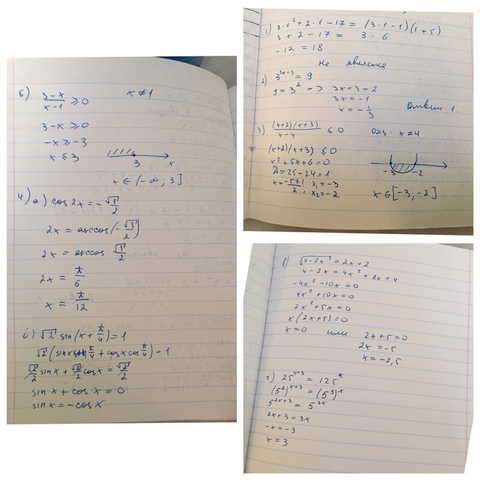 б) (3-x)/(x-1) ≥ 0 x ≠ 1
3-x ≥ 0
-x ≥ -3
x ≤ 3
3 x
x ∈ (-∞, 3]
4) a) cos 2x = -√3/2
2x = arccos(-√3/2)
2x = arccos √3/2
2x = π/6
x = π/12
б) √2 sin(x + π/4) = 1
√2 (sinx sin π/4 + cosx cos π/4) = 1
√2/2 sinx + √2/2 cosx = √2/2
sinx + cosx = 0
sinx = -cosx
1) 3·1² + 2·1 - 17 = (3·1-1)(1+5)
3 + 2 - 17 = 3·6
-12 = 18
Не является
2) 3^(3x+3) = 9
9 = 3² => 3x+3=2
3x = -1
x = -1/3
Ответ: 1
3) (x+2)(x+3)/(x-4) ≤ 0 ОДЗ: x ≠ 4
(x+2)(x+3) ≤ 0
x² + 5x + 6 = 0
D = 25 - 24 = 1
x = (-5±1)/2 x₁ = -3
x₂ = -2
-3 -2
x ∈ [-3; -2]
в) √(4-2x) = 2x+2
4-2x = 4x² + 8x + 4
-4x² - 10x = 0
4x² + 10x = 0
2x² + 5x = 0
x(2x+5) = 0
x = 0 или 2x+5 = 0
2x = -5
x = -2,5
г) 25^(x+3) = 125^x
(5²)^(x+3) = (5³)^x
5^(2x+3) = 5^(3x)
2x+3 = 3x
-x = -3
x = 3